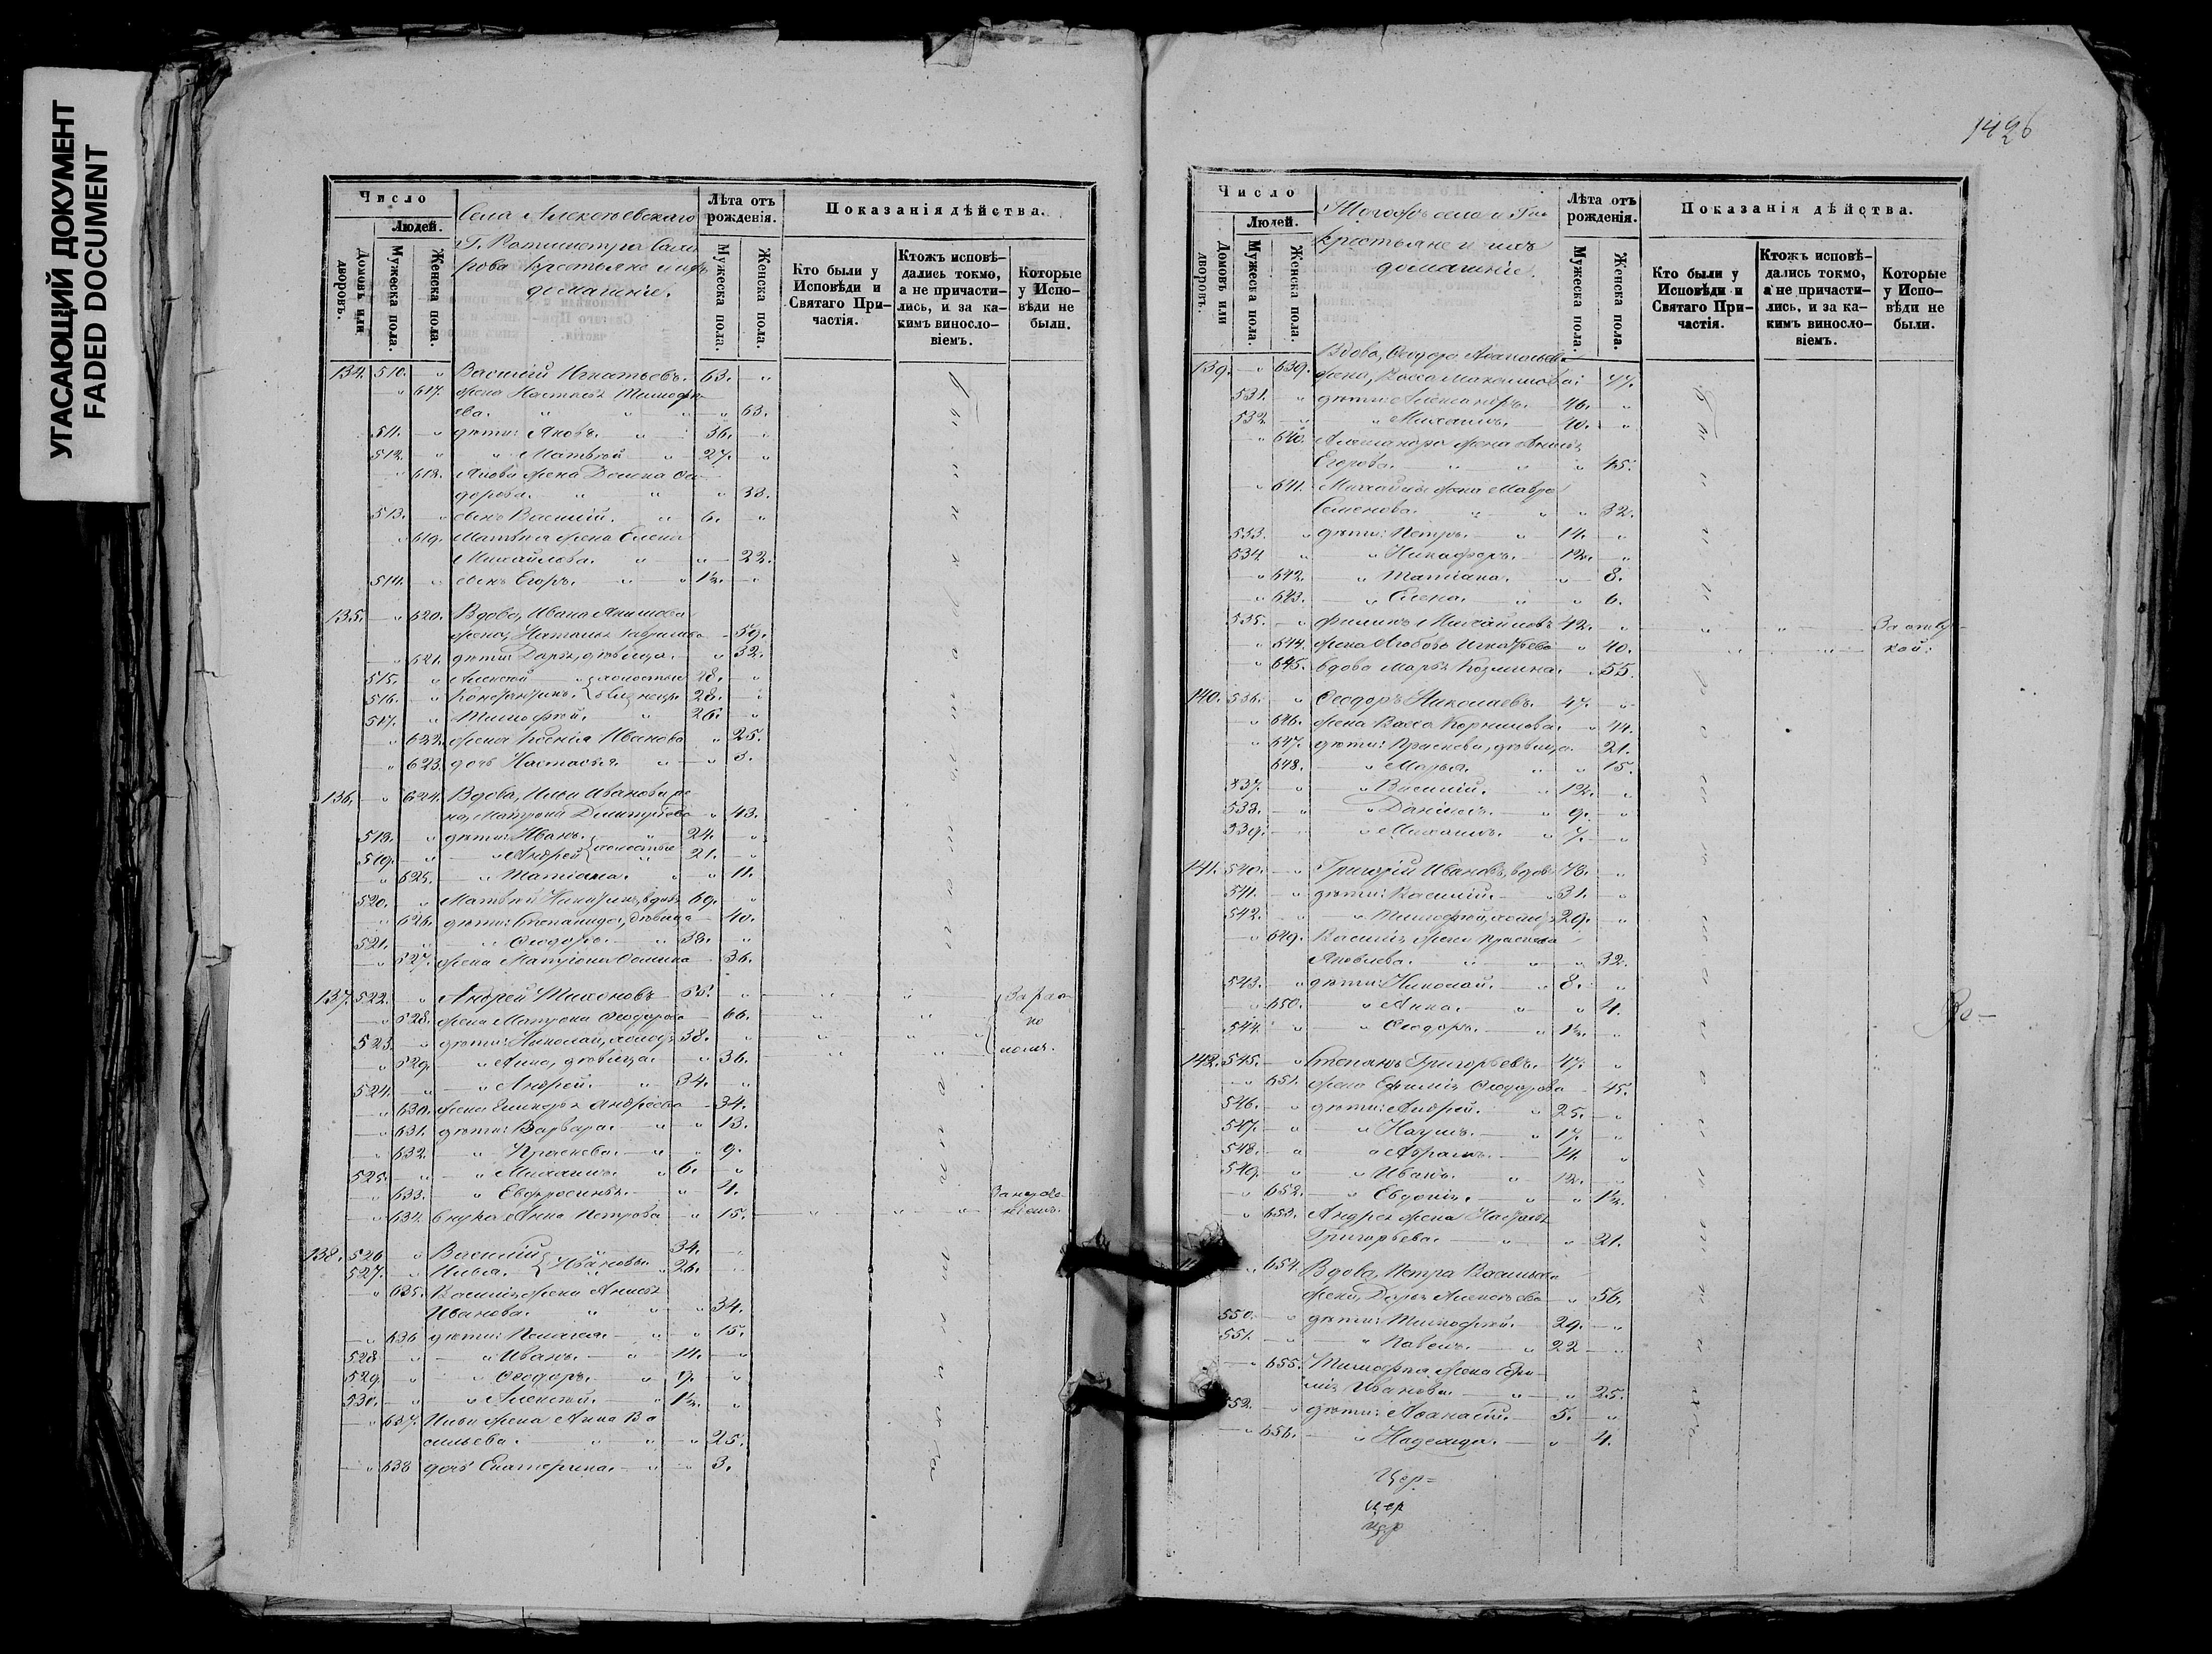 УГАСАЮЩИЙ ДОКУМЕНТ
FADED DOCUMENT
Число
Людей.
Домовъ или дворовъ.
Мужеска пола.
Женска пола.
Села Алексѣевскаго
Г. Ротмистра
крестьяне и ихъ
домашніе.
Лѣта отъ рожденія.
Мужеска пола.
Женска пола.
Показанія дѣйства.
Кто были у Исповѣди и Святаго Причастія.
Ктожъ исповѣдались токмо, а не причастились, и за какимъ винословіемъ.
Которые у Исповѣди не были.
134. 510. " Василій Игнатьевъ. 63. "
" 617. жена Настасья Тимофе-
ева. " " " 63.
511. " дѣти: Яковъ. " 36. "
512. " " Матвей " 27. "
" 618. Якова жена Домна Ѳе-
дорова. " " " 33.
513. " сынъ Василій. " 6. "
" 619. Матвея жена Елена
Михайлова. " " 22.
514. " сынъ Егоръ. " " 1½. "
135. " 620. Вдова, Ивана Акимова
жена, Наталья Гаврилова 59.
" 621. дѣти: Дарья, дѣвица. " 32.
515. " Алексѣй " холостые 28. "
516. " Константинъ. близнецы 28. "
517. " Тимофей. " 26. "
" 622. жена Ксенія Иванова " 25.
" 623. дочь Настасья. " " 3.
136. " 624. Вдова, Ильи Иванова же-
на, Матрона Димитріева " 43.
518. " дѣти: Иванъ. " 24. "
519. " " Андрей холостые 21. "
" 625. " Татіана. " " 11.
520. " Матвей Никитинъ, вдовъ 69. "
" 626. дѣти: Степанида, дѣвица 40.
521. " " Ѳеодоръ. " 38. "
" 627. жена Матрона Ѳомина 36.
137. 522. " Андрей Тихоновъ 65. " " " За раско
" 628. жена Матрона Ѳеодорова 66. " " ло
523. " дѣти: Николай, холост. 38. " " " "
" 629. " Анна, дѣвица. " 36. " "
524. " " Андрей. " 34. "
" 630. жена Гликерья Андреева 34.
" 631. дѣти: Варвара. " " 13.
" 632. " Прасковья. " " 9.
525. " " Михаилъ. " 6. "
" 633. " Евфросинья. " 4.
" 634. внука Анна Петрова " 15. " " "
138. 526. " Василій 34. "
527. " Илья. Ивановы 26. "
" 635. Василія жена Анисья
Иванова. " " " 34.
" 636 дѣти: Пелагея. " " 15.
528 " " Иванъ. " 14. "
529. " " Ѳеодоръ. " 9. "
530. " " Алексѣй. " 1½. "
" 637. Ильи жена Анна Ва
сильева. " " " 25.
" 638 дочь Екатерина. " " 3.
1426
Число
Людей.
Домовъ или дворовъ.
Мужеска пола.
Женска пола.
Тогожъ села и Г-на
крестьяне и ихъ
домашніе.
Лѣта отъ рожденія.
Мужеска пола.
Женска пола.
Показанія дѣйства.
Кто были у Исповѣди и Святаго Причастія.
Ктожъ исповѣдались токмо, а не причастились, и за какимъ винословіемъ.
Которые у Исповѣди не были.
139. " 639. Вдова, Ѳеодора Аѳанасьева
жена, Васса Максимова: 77.
531. " дѣти: Александръ. 46. "
532. " " Михаилъ. 40. "
" 640. Александра жена
Егорова. " " " 45.
" 641. Михаила жена Мавра
Семенова. " " " 32.
533. " дѣти: Петръ. " 14. "
534. " " Никифоръ. 12. "
" 642. " Татіана. " 8.
" 643. " Елена. " " 6.
535. " Филипъ Михайловъ 42. " " " За отлу-
" 644. жена Любовь Игнатьева " 40. " " кой.
" 645. вдова Марья Козмина. " 55.
140. 536. " Ѳеодоръ Николаевъ. 47. "
" 646. жена Васса Корнилова. " 44.
" 647. дѣти: Прасковья, дѣвица. 21.
648. " Марья. " " 15.
537. " " Василій. " 12. "
538. " " Даніилъ. " 9. "
539. " " Михаилъ. " 7. "
141. 540. " Григорій Ивановъ, вдовъ 78. "
541. " дѣти: Василій. " 31. "
542. " " Тимофей, холост. 29. "
" 649. Василія жена Прасковья
Яковлева. " " " 32.
543. " дѣти: Николай. " 8. "
" 650. " Анна. " " 4.
544. " " Ѳеодоръ. " 1½. "
142. 545. " Степанъ Григорьевъ. 47. "
" 651. жена Ефимія Ѳеодорова 45.
546. " дѣти: Андрей. " 25. "
547. " " Наумъ. " 17. "
548. " " Абрамъ. 14. "
549. " " Иванъ. " 12. "
" 652. " Евдокія. " " 1½.
" 653. Андрея жена Настасья
Григорьева. " " 21.
" 654. Вдова, Петра Васильева
жена, Дарья Алексѣева " 56.
550. " дѣти: Тимофей. 29. "
551. " " Павелъ. " 22 "
" 655. Тимофея жена Ефи-
мія Иванова. " " 25.
552. " дѣти: Аѳанасій. 5. "
" 656. " Надежда. " 4.
Цер=
цер
цер